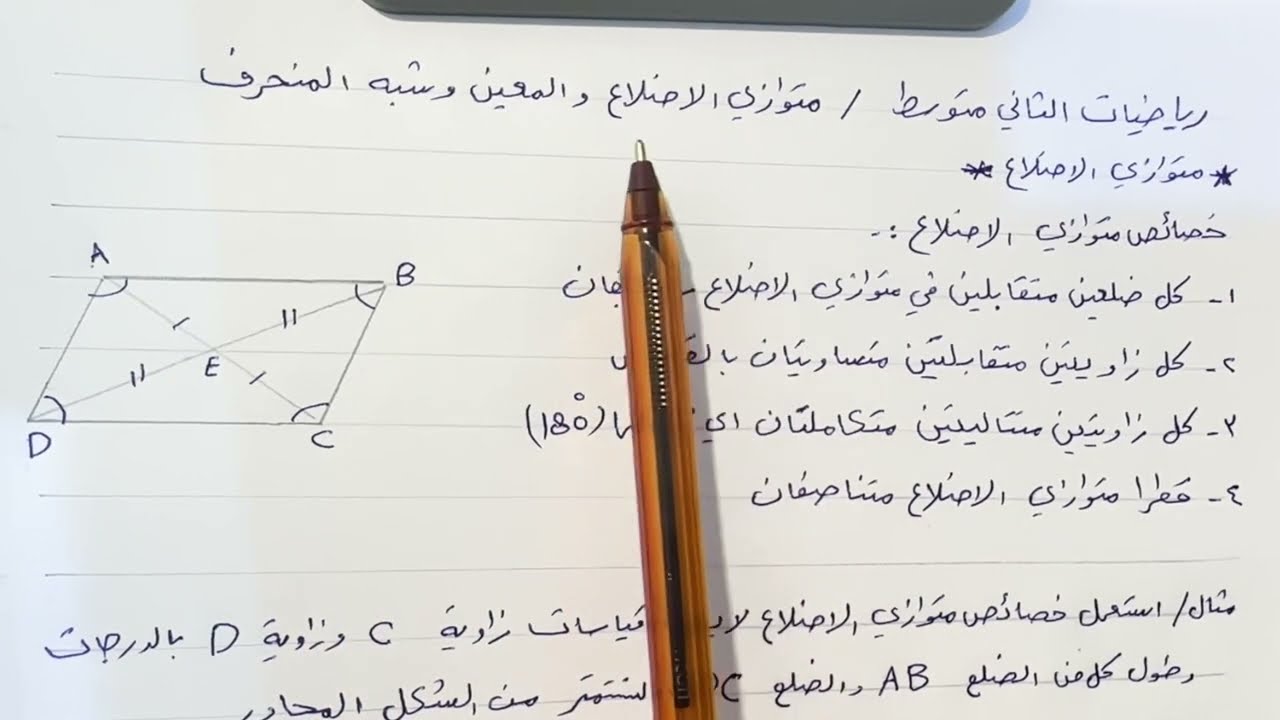 رياضيات الثاني متوسط / متوازي الاضلاع والمعين وشبه المنحرف
* متوازي الاضلاع *
خصائص متوازي الاضلاع :-
١- كل ضلعين متقابلين في متوازي الاضلاع
٢- كل زاويتين متقابلتين متساويتان
٣- كل زاويتين متتاليتين متكاملتان اي (180°)
٤- قطرا متوازي الاضلاع متناصفان
A
B
E
D
C
مثال/ استعمل خصائص متوازي الاضلاع قياسات زاوية C وزاوية D بالدرجات
وطول كل من الضلع AB والضلع من الشكل المجاور